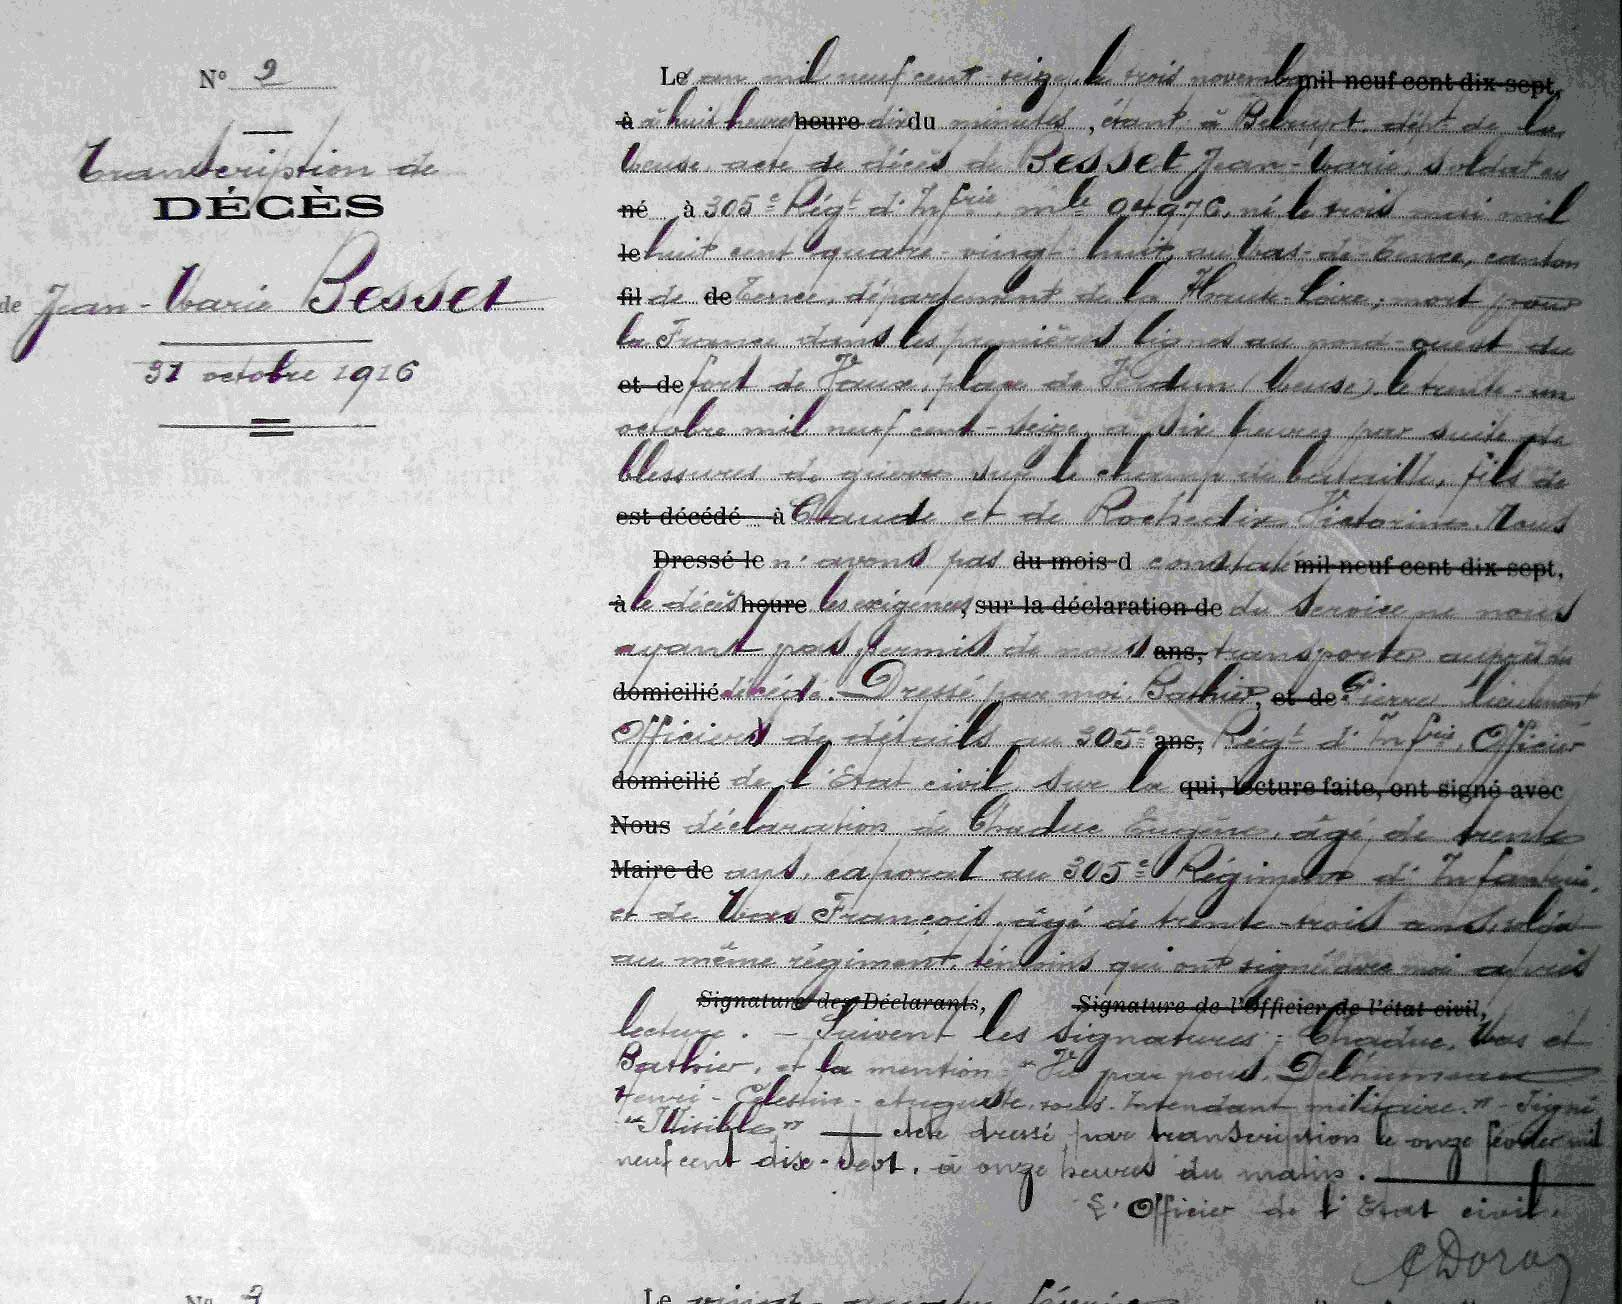 N° 2
Transcription de
DÉCÈS
de Jean-Marie Besset
31 octobre 1916
Les an mil neuf cent-seize, le trois novembre mil neuf cent dix-sept,
à à huit heures heure dix du minutes, étant à Belrupt, dépt de la
Meuse, acte de décès de Besset Jean-Marie, soldat au
né à 305e Régt d'Infrie, mle 04976, né le trois mai mil
le huit cent quatre-vingt huit, au Mas-de-Tence, canton
fil de de Tence, département de la Haute-Loire; mort pour
la France dans les premières lignes au nord-ouest du
et de fort de Vaux, place de Verdun (Meuse), le trente-un
octobre mil neuf cent-seize, à six heures par suite de
blessures de guerre sur le champ de bataille, fils de
est décédé à Claude et de Rochedix Victorine. Nous
Dressé le n'avons pas du mois d constaté mil neuf cent dix-sept,
à le décès heure les exigences, sur la déclaration de du service ne nous
ayant pas permis de nous ans, transporter auprès du
domicilié décédé. Dressé par moi, Barthier, et de Pierre lieutenant
Officier de détails au 305e ans, Régt d'Infrie, Officier
domicilié de l'Etat civil sur la qui, lecture faite, ont signé avec
Nous déclaration de Chaduc Eugène, âgé de trente
Maire de ans, caporal au 305e Régiment d'Infanterie,
et de Mas François, âgé de trente-trois ans, soldat
au même régiment, témoins qui ont signé avec moi après
Signature des Déclarants, Signature de l'Officier de l'état civil,
lecture. — Suivent les signatures: Chaduc, Mas et
Barthier, et la mention: "Vu par nous, Delhumeau
Henri-Célestin-Auguste, sous-Intendant militaire." - Signé
"Illisible" — Acte dressé par transcription le onze février mil
neuf cent dix-sept, à onze heures du matin.
L'Officier de l'Etat civil.
N° 3
Le vingt